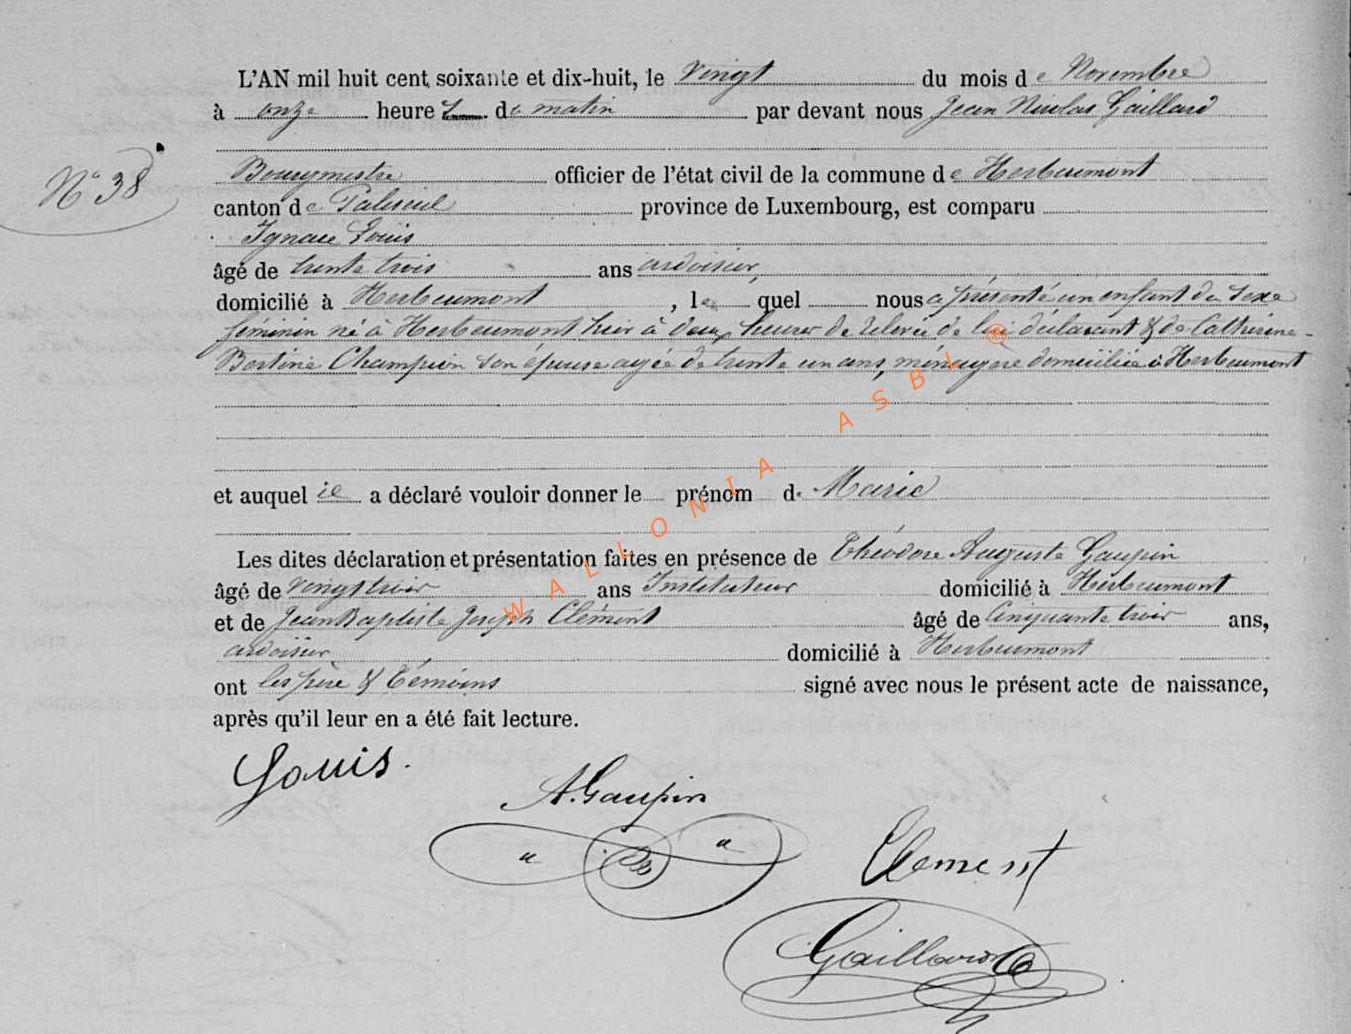 L'AN mil huit cent soixante et dix-huit, le vingt du mois de Novembre
à onze heures du matin par devant nous Jean Nicolas Gaillard
N° 38
Bourgmestre officier de l'état civil de la commune de Herbeumont
canton de Paliseul province de Luxembourg, est comparu
Ignace Louis
âgé de trente trois ans ardoisier,
domicilié à Herbeumont, le quel nous a présenté un enfant du sexe
féminin né à Herbeumont hier à deux heures de relevée de lui déclarant & de Catherine
Bertine Champion son épouse agée de trente un ans, ménagere domiciliée à Herbeumont
et auquel il a déclaré vouloir donner le prénom de Marie
Les dites déclaration et présentation faites en présence de Théodore Auguste Gaupin
âgé de vingt trois ans Instituteur domicilié à Herbeumont
et de Jean Baptiste Joseph Clément âgé de Cinquante trois ans,
ardoisier domicilié à Herbeumont
ont les père & témoins signé avec nous le présent acte de naissance,
après qu'il leur en a été fait lecture.
Louis.
A. Gaupin
Clement
Gaillard
WALLONIA ASBL ®